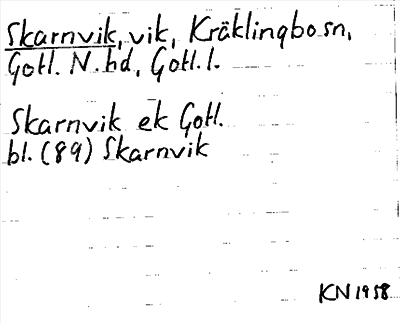 Skarnvik, vik, Kräklingbo sn,
Gotl. N. hd, Gotl. l.
Skarnvik ek Gotl.
bl. (89) Skarnvik
KN 1958